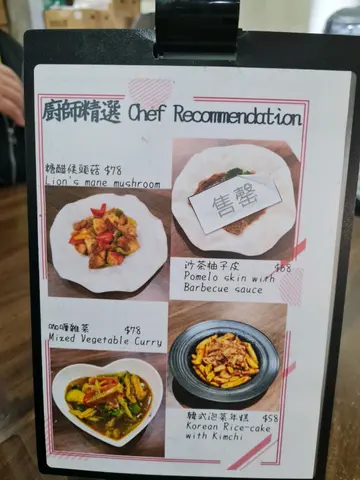 廚師精選 Chef Recommendation
糖醋猴頭菇 $78
Lion's mane mushroom
售罄
沙茶柚子皮 $68
Pomelo skin with
Barbecue sauce
咖喱雜菜 $78
Mixed Vegetable Curry
韓式泡菜年糕 $58
Korean Rice-cake
with Kimchi